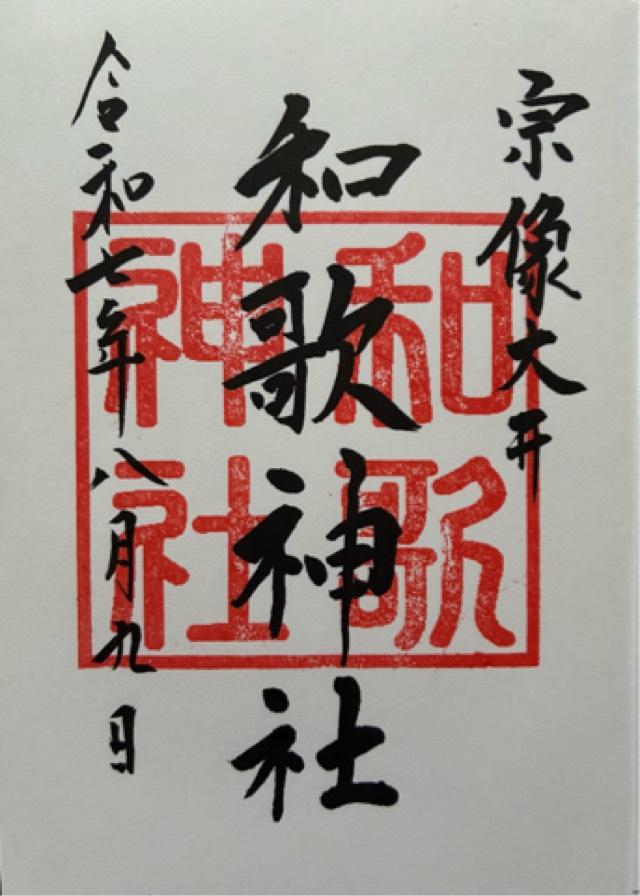 宗像大井
和歌神社
令和七年八月九日
和歌
神社